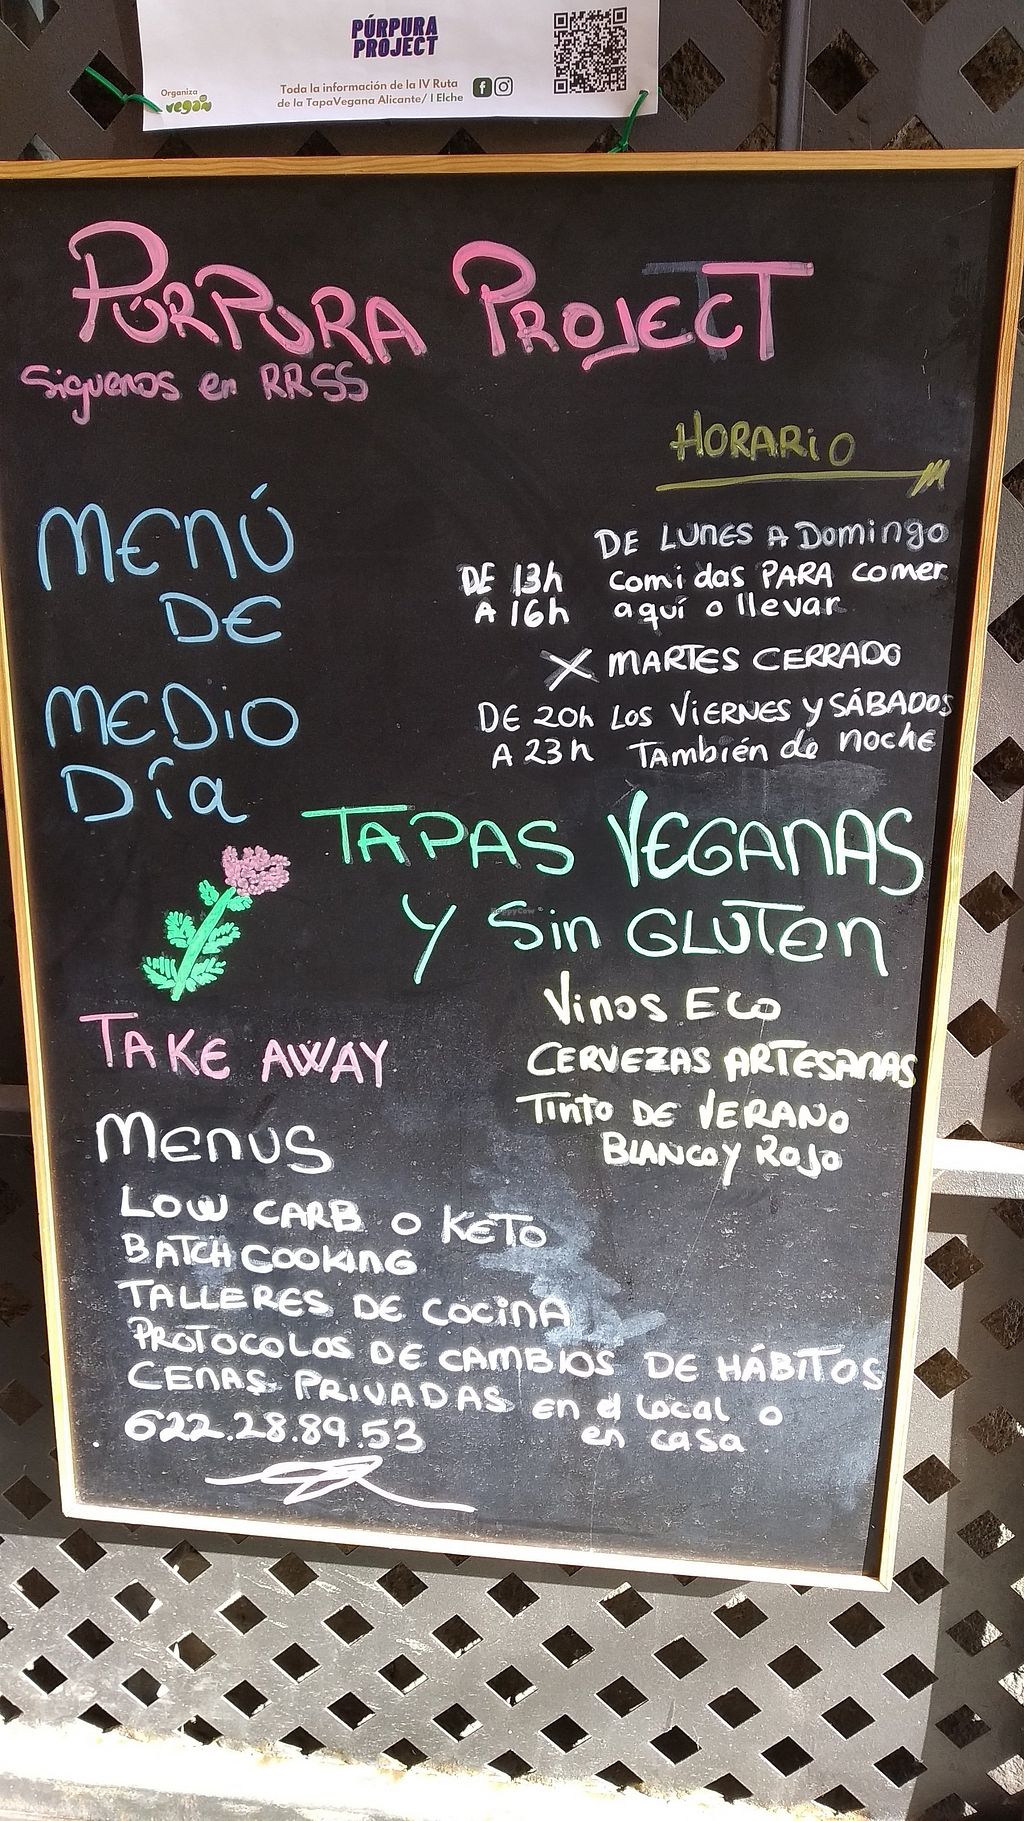 PÚRPURA
PROJECT
Organiza
vegan
Toda la información de la IV Ruta
de la TapaVegana Alicante/ I Elche
PÚRPURA PROJECT
Siguenos en RRSS
HORARIO
MENÚ
DE
MEDIO
Día
DE LUNES A Domingo
DE 13h comidas PARA comer
A 16h aquí o llevar
X MARTES CERRADO
DE 20h LOS VIERNES Y SÁBADOS
A 23h También de noche
TAPAS VEGANAS
Y Sin GLUTEN
HappyCow
Vinos Eco
CERVEZAS ARTESANAS
Tinto DE VERANO
BLANCO Y ROJO
TAKE AWAY
MENUS
LOW CARB O KETO
BATCH COOKING
TALLERES DE COCINA
PROTOCOLOS DE CAMBIOS DE HÁBITOS
CENAS PRIVADAS en el Local o
en casa
622.28.89.53